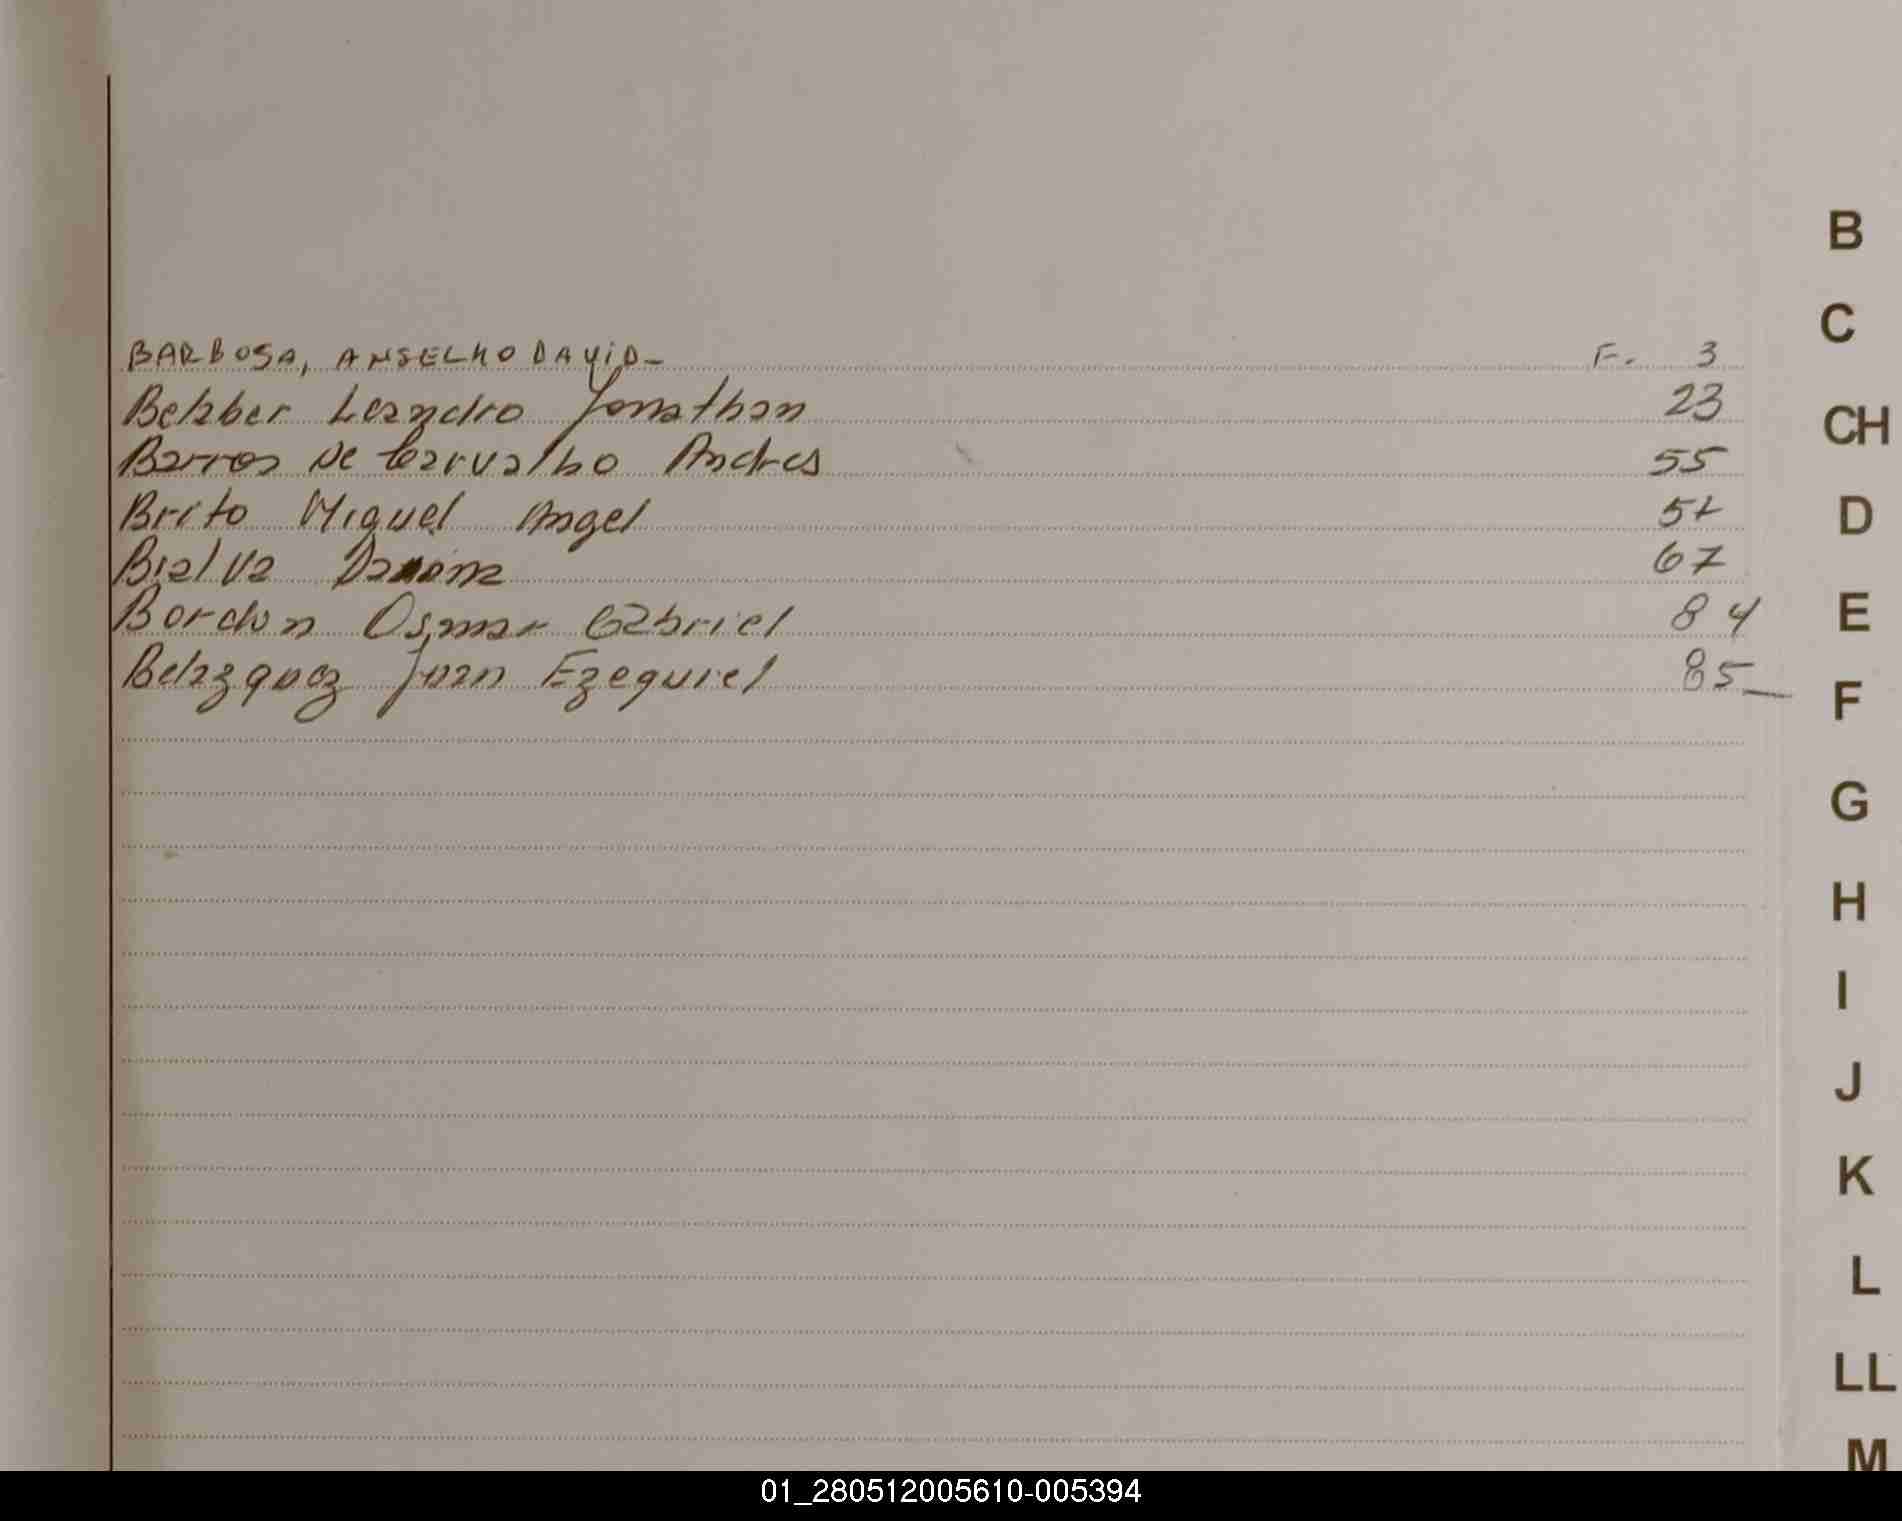 BARBOSA, ANSELMO DAVID- F. 3
Belaber Leandro Jonathan 23
Barros De Carvalho Andres 55
Brito Miguel Angel 57
Bialva 67
Bordon Osmar Gabriel 84
Belazquez Juan Ezequiel 85
B
C
CH
D
E
F
G
H
I
J
K
L
LL
M
01_280512005610-005394